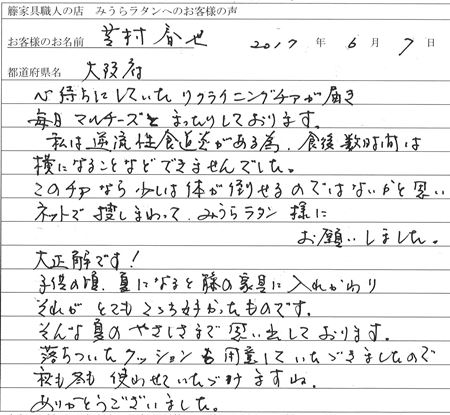 籐家具職人の店 みうらラタンへのお客様の声
お客様のお名前 芝村春也 2017 年 6 月 7 日
都道府県名 大阪府
心待ちにしていたリクライニングチアが届き
毎日マルチーズとまったりしております。
私は逆流性食道炎がある為、食後数時間は
横になることなどできませんでした。
このチアなら少しは体が倒せるのではないかと思い
ネットで捜しまわって、みうらラタン様に
お願いしました。
大正解です!
子供の頃、夏になると籐の家具に入れかわり
それがとてもここち好かったものです。
そんな夏のやさしさまで思い出しております。
落ちついたクッションも用意していただきましたので
秋も冬も使わせていただけますね。
ありがとうございました。